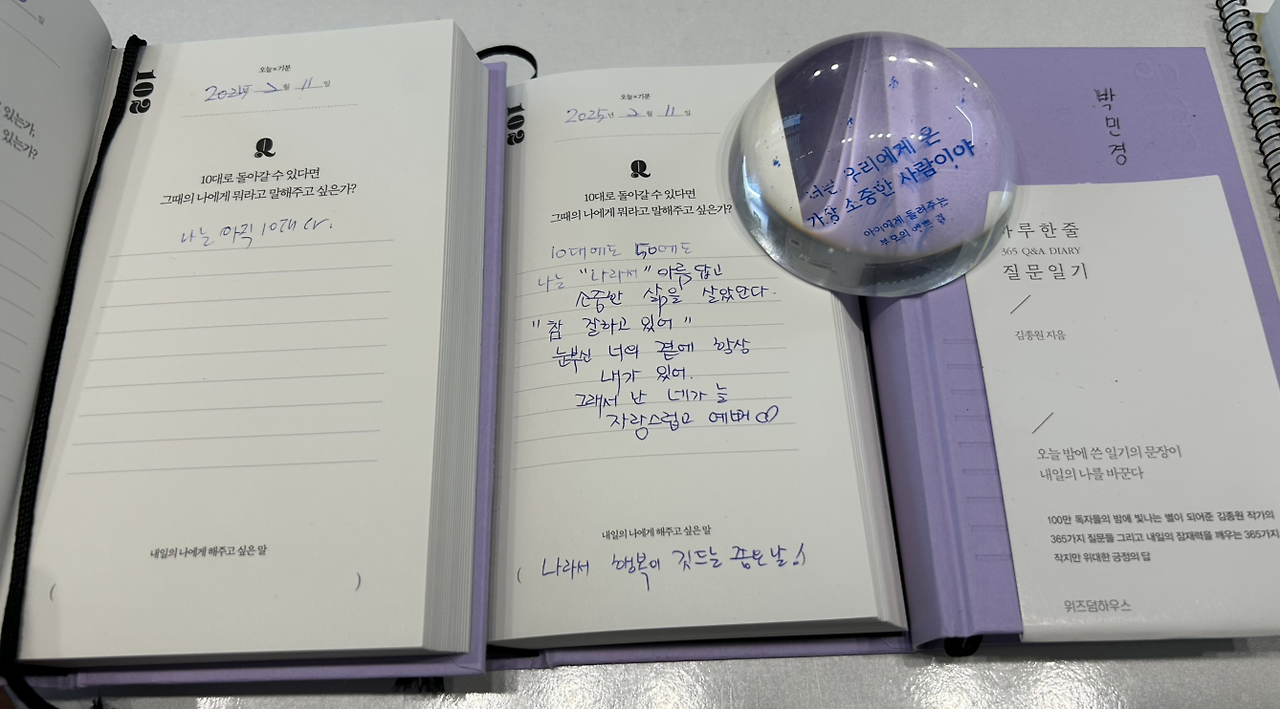 있는가,
있는가?
102
오늘×기분
2025년 2월 11일
Q
10대로 돌아갈 수 있다면
그때의 나에게 뭐라고 말해주고 싶은가?
나는 아직 10대다.
내일의 나에게 해주고 싶은 말
( )
102
오늘×기분
2025년 2월 11일
Q
10대로 돌아갈 수 있다면
그때의 나에게 뭐라고 말해주고 싶은가?
10대에도 50에도
나는 "나라서" 아름답고
소중한 삶을 살았단다.
"참 잘하고 있어"
눈부신 너의 곁에 항상
내가 있어.
그래서 난 네가 늘
자랑스럽고 예뻐
내일의 나에게 해주고 싶은 말
( 나라서 행복이 깃드는 좋은날! )
너는 우리에게 온
가장 소중한 사람이야
아이에게 들려주는
부모의 예쁜 말
박민경
하루 한 줄
365 Q&A DIARY
질문 일기
김종원 지음
오늘 밤에 쓴 일기의 문장이
내일의 나를 바꾼다
100만 독자들의 밤에 빛나는 별이 되어준 김종원 작가의
365가지 질문들 그리고 내일의 잠재력을 깨우는 365가지
작지만 위대한 긍정의 답
위즈덤하우스